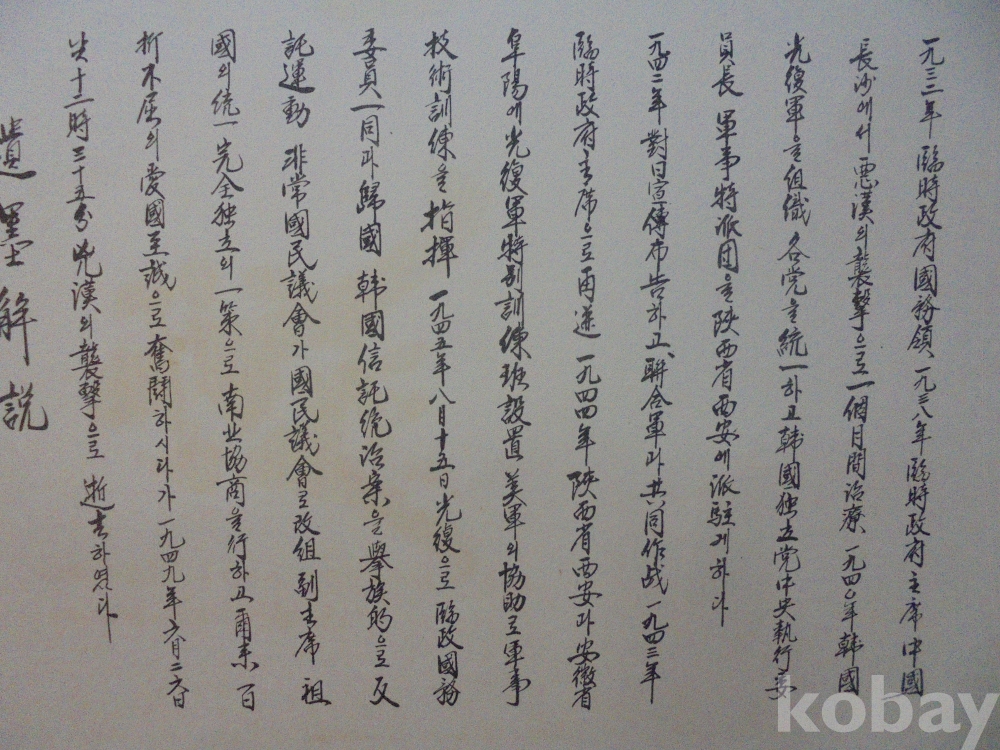 一九三二年 臨時政府國務領 一九三八年 臨時政府主席 中國
長沙에서 悪漢의 襲撃으로 一個月間治療 一九四〇年 韓國
光復軍을 組織 各党을 統一하고 韓國独立党中央執行委
員長 軍事特派団을 陝西省西安에 派駐게하다
一九四二年 對日宣傳布告하고 聯合軍과 共同作战 一九四三年
臨時政府主席으로 再選 一九四四年 陝西省西安과 安徽省
阜陽에 光復軍特別訓練班設置 美軍의 協助로 軍事
技術訓練을 指揮 一九四五年八月十五日 光復으로 臨政國務
委員一同과 歸國 韓國信託統治案을 擧族的으로 反
託運動 非常國民議會가 國民議會로 改組 副主席 祖
國의 統一 完全独立의 一策으로 南北協商을 行하고 爾来 百
折不屈의 愛國至誠으로 奮鬪하시다가 一九四九年六月二六日
十二時三十五分 兇漢의 襲撃으로 逝去하였다
遺墨解説
kobay